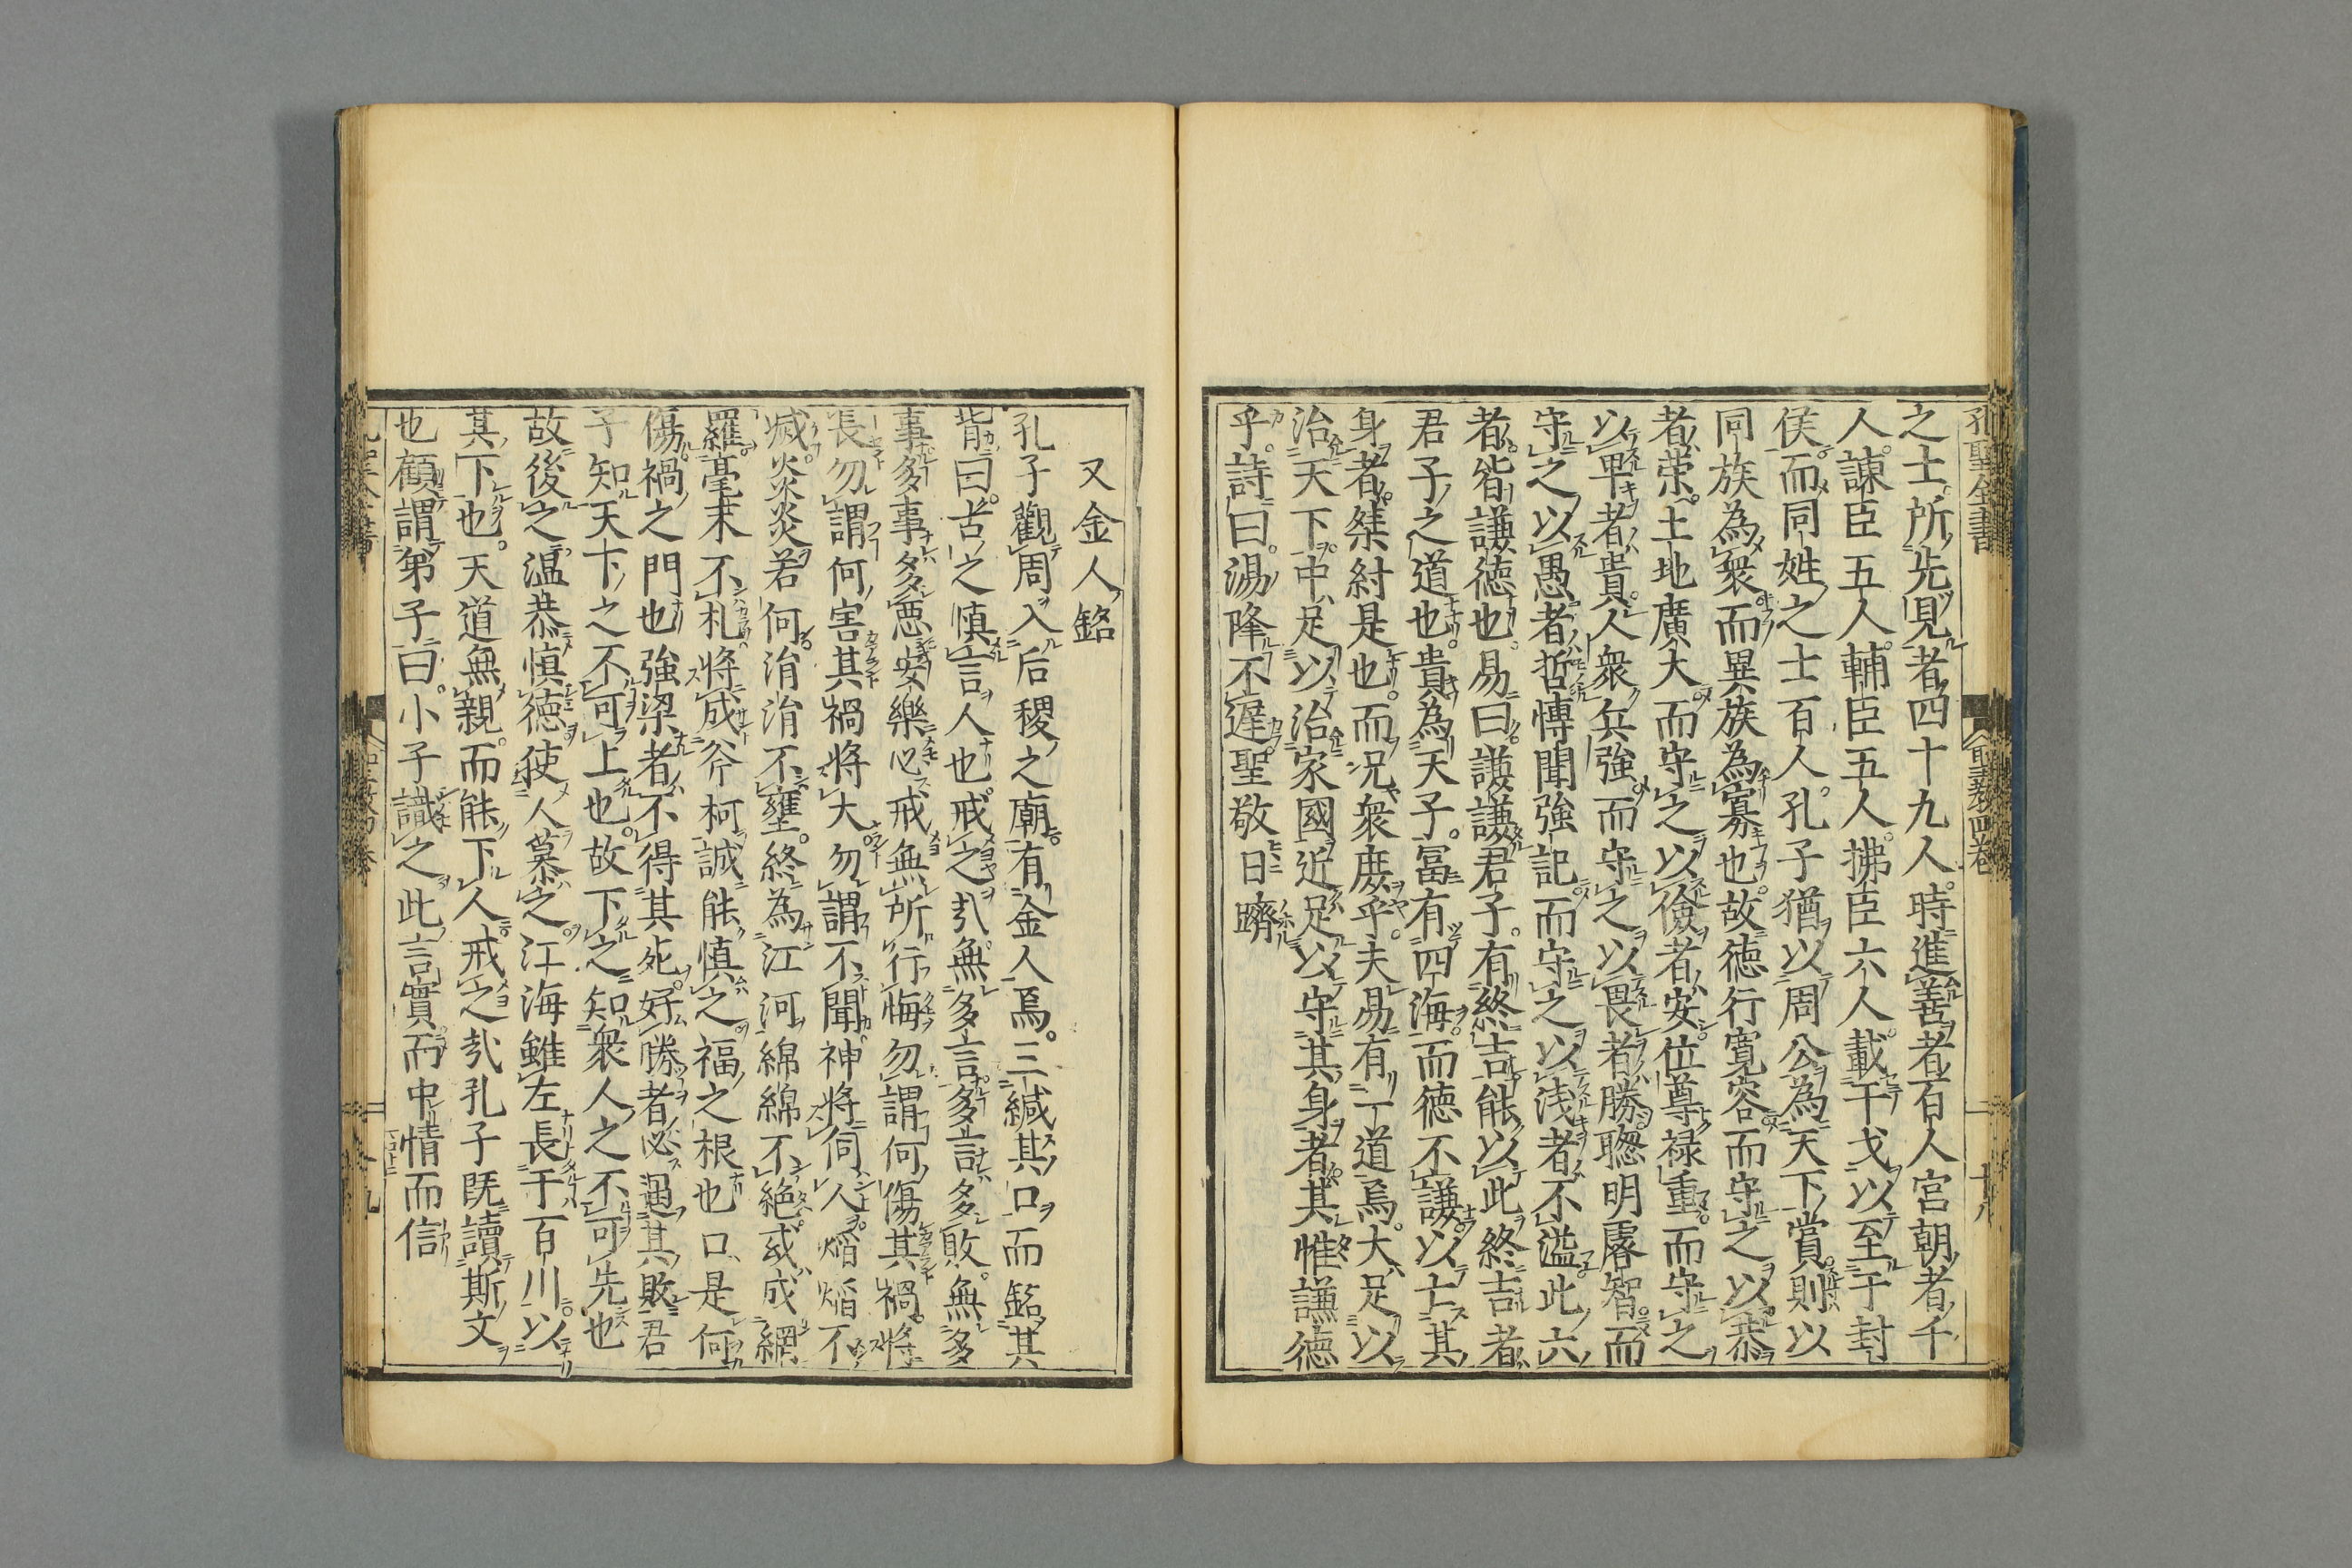 之士所先見者四十九人時進善者百人宮朝者千
人諫臣五人輔臣五人拂臣六人載干戈以至于封
侯而同姓之士百人孔子猶以周公為天下賞則以
同族為衆而異族為寡也故徳行寛容而守之以恭
者荣土地廣大而守之以儉者安位尊禄重而守之
以卑者貴人衆兵強而守之以畏者勝聦明睿智而
守之以愚者哲博聞強記而守之以浅者不溢此六
者皆謙徳也易曰謙謙君子有終吉能以此終吉者
君子之道也貴為天子冨有四海而徳不謙以亡其
身者桀紂是也而况衆庶乎夫易有一道焉大足以
治天下中足以治家國近足以守其身者其惟謙德
乎詩曰湯降不遲聖敬日躋
又金人銘
孔子觀周入后稷之廟有金人焉三緘其口而銘其
背曰古之慎言人也戒之㢤無多言多言多敗無多
事多事多悪安樂必戒無所行悔勿謂何傷其禍將
長勿謂何害其禍將大勿謂不聞神將伺人焰焰不
滅炎炎若何涓涓不壅終為江河綿綿不絶或成網
羅毫末不札將成斧柯誠能慎之福之根也口是何
傷禍之門也強梁者不得其死好勝者必遇其敵君
子知天下之不可上也故下之知衆人之不可先也
故後之温恭慎徳使人慕之江海雖左長于百川以
其下也天道無親而能下人戒之㢤孔子既讀斯文
也顧謂弟子曰小子識之此言實而中情而信